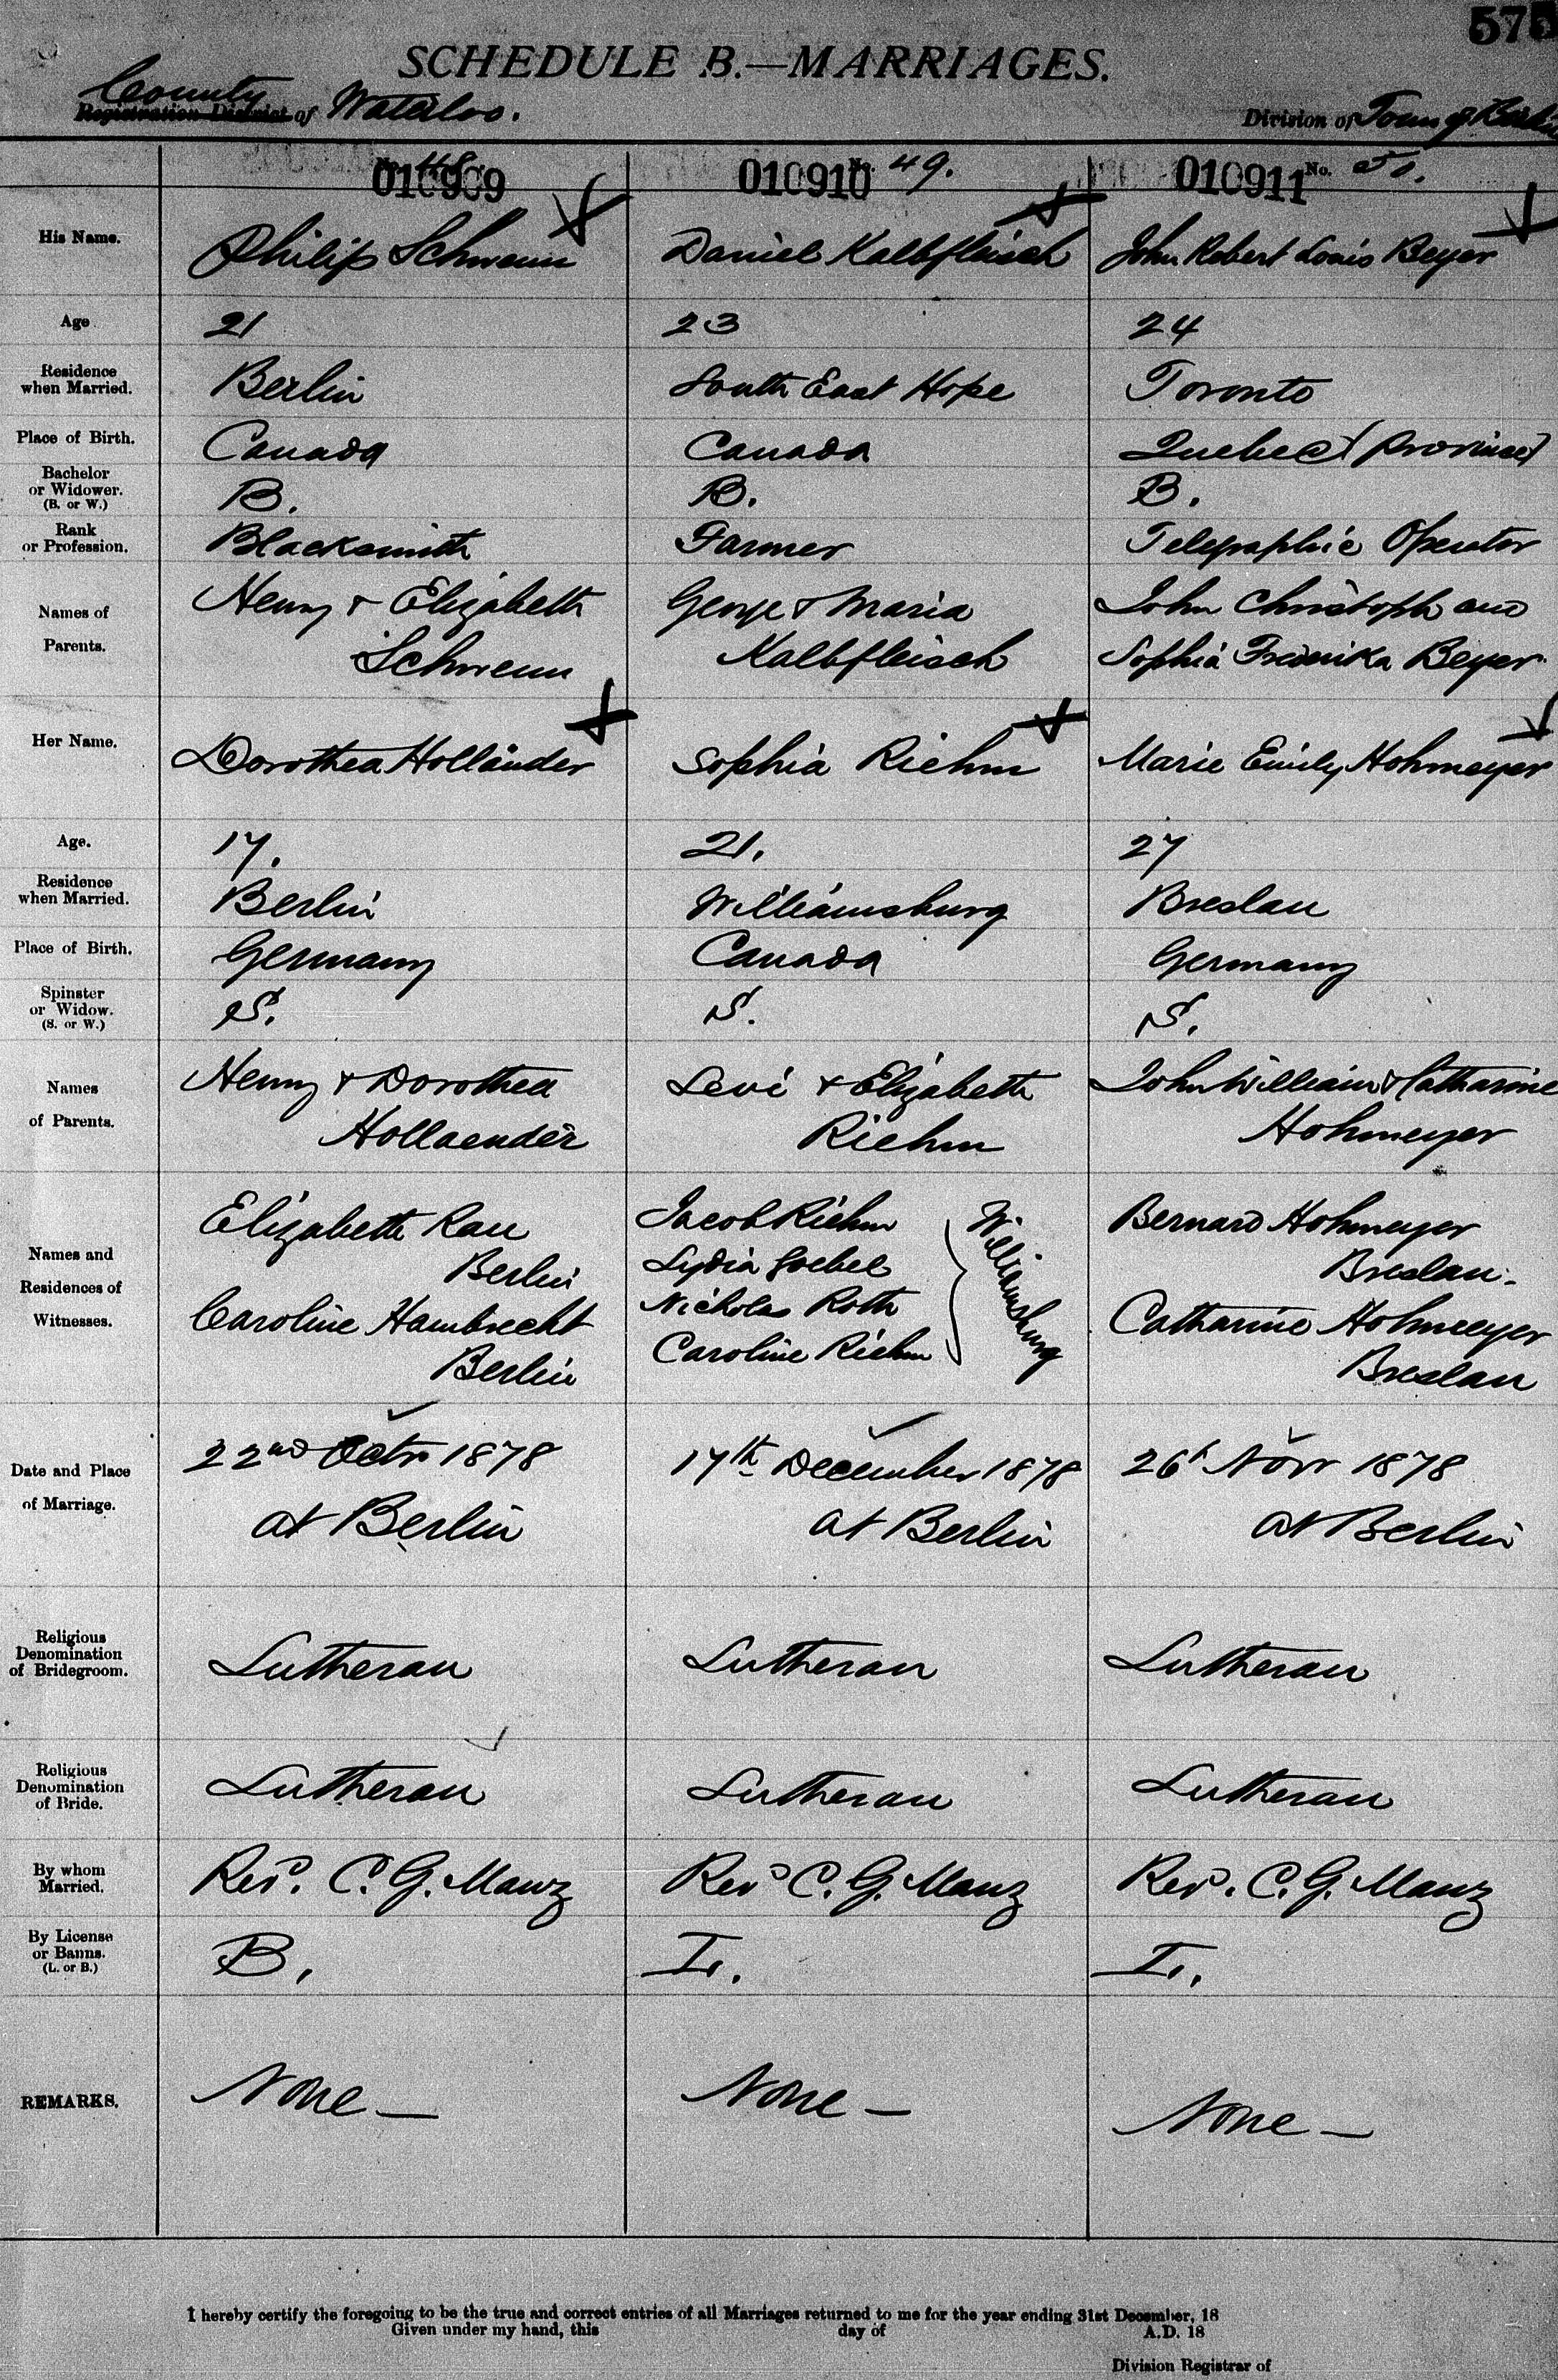 575
SCHEDULE B.—MARRIAGES.
County
Registration District of Waterloo.
Division of Town of Berlin
010909 No. 48.
010910 No. 49.
010911 No. 50.
His Name.
Philip Schwenn
Daniel Kalbfleisch
John Robert Louis Beyer
Age
21
23
24
Residence
when Married.
Berlin
South East Hope
Toronto
Place of Birth.
Canada
Canada
Quebec (Province)
Bachelor
or Widower.
(B. or W.)
B.
B.
B.
Rank
or Profession.
Blacksmith
Farmer
Telegraphic Operator
Names of
Parents.
Henry & Elizabeth
Schwenn
George & Maria
Kalbfleisch
John Christoph and
Sophia Frederika Beyer
Her Name.
Dorothea Holländer
Sophia Riehm
Marie Emily Hohmeyer
Age.
17.
21.
27
Residence
when Married.
Berlin
Williamsburg
Breslau
Place of Birth.
Germany
Canada
Germany
Spinster
or Widow.
(S. or W.)
S.
S.
S.
Names
of Parents.
Henry & Dorothea
Hollaender
Levi & Elizabeth
Riehm
John William & Catharine
Hohmeyer
Names and
Residences of
Witnesses.
Elizabeth Rau
Berlin
Caroline Hambrecht
Berlin
Jacob Riehm
Lydia Goebel
Nicholas Roth
Caroline Riehm
Williamsburg
Bernard Hohmeyer
Breslau.
Catharine Hohmeyer
Breslau
Date and Place
of Marriage.
22nd Octr 1878
at Berlin
17th December 1878
at Berlin
26th Novr 1878
at Berlin
Religious
Denomination
of Bridegroom.
Lutheran
Lutheran
Lutheran
Religious
Denomination
of Bride.
Lutheran
Lutheran
Lutheran
By whom
Married.
Revd. C. G. Manz
Revd C. G. Manz
Revd. C. G. Manz
By License
or Banns.
(L. or B.)
B.
L.
L.
REMARKS.
None —
None —
None —
I hereby certify the foregoing to be the true and correct entries of all Marriages returned to me for the year ending 31st December, 18
Given under my hand, this day of A.D. 18
Division Registrar of